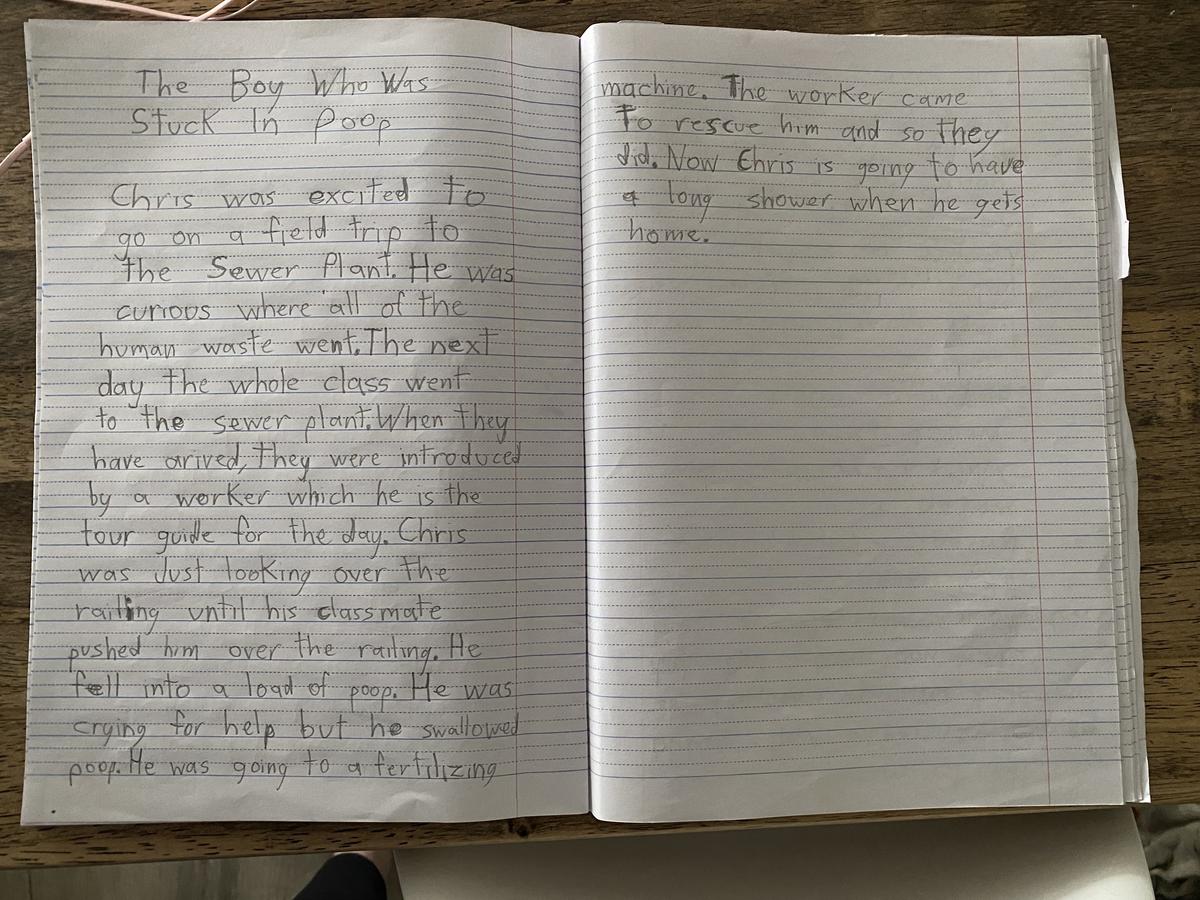 The Boy Who Was
Stuck In Poop
Chris was excited to
go on a field trip to
the Sewer Plant. He was
curious where all of the
human waste went. The next
day the whole class went
to the sewer plant. When they
have arived, they were introduced
by a worker which he is the
tour guide for the day. Chris
was Just looking over the
railing until his classmate
pushed him over the railing. He
fell into a load of poop. He was
crying for help but he swallowed
poop. He was going to a fertilizing
machine. The worker came
to rescue him and so they
did. Now Chris is going to have
a long shower when he gets
home.